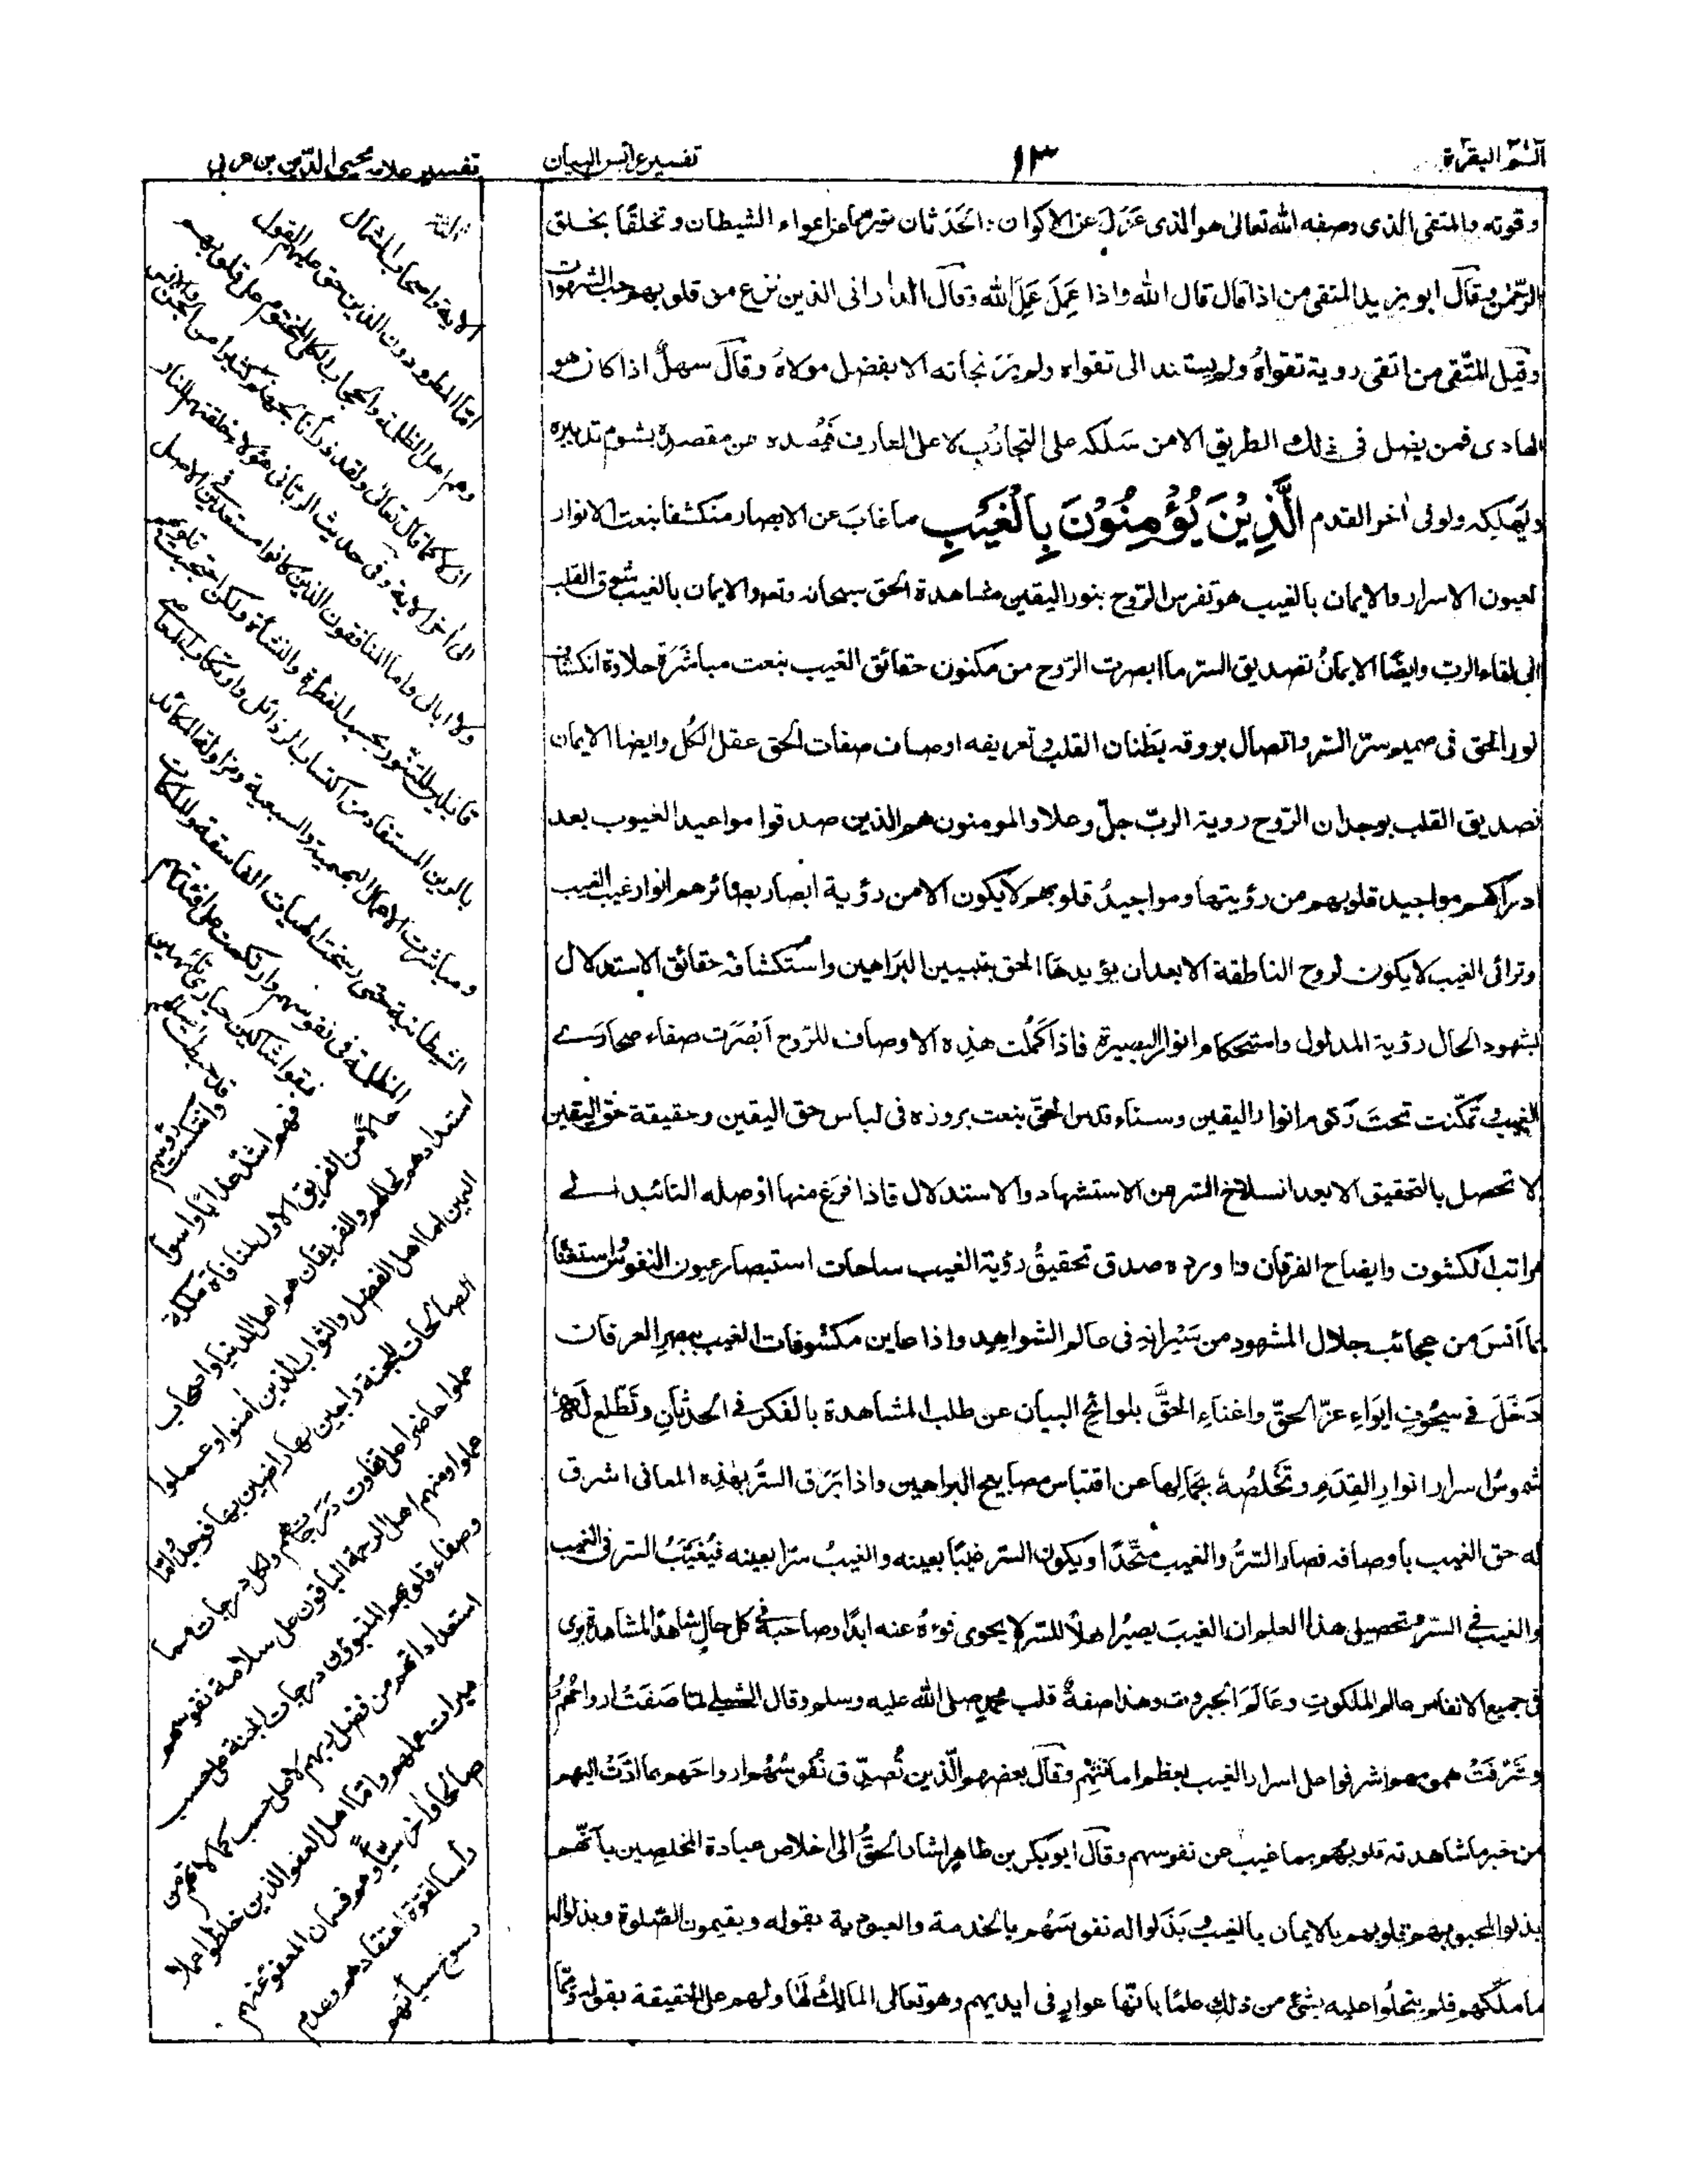 آلٓمّٓ البقرة
١٣
تفسير عرائس البيان
تفسير علامه محيى الدّين بن عربى
وقوته والمتقى الذى وصفه الله تعالىٰ هو الذى عزل عن الاكوان والحدثان متبرما عن اغواء الشيطان وتخلقًا بخلق
الرّحمٰن وقال ابو يزيد المتقى من اذا قال قال الله واذا عمل عمل لله وقال الدارانى الذين نزع من قلوبهم حب الشهوات
وقيل المتّقى من اتقى روية تقواهُ ولم يستند الى تقواه ولم ير نجاته الا بفضل مولاهُ وقال سهلٌ اذا كان هو
الهادى فمن يضل فى ذلك الطريق الا من سلكه على التجاذب لا على العارف فيصده عن مقصدهٖ بشوم تدبيره
ويهلكه ولو فى اٰخر القدم الَّذِيْنَ يُؤْمِنُوْنَ بِالْغَيْبِ ما غابَ عن الابصار منكشفا بنعت الانوار
لعيون الاسرار والايمان بالغيب هو تفرس الرّوح بنور اليقين مشاهدة الحق سبحانه وتعالى والايمان بالغيب شوق القلب
الى لقاء الرب وايضًا الايمانُ تصديق السّر ما ابصرت الرّوح من مكنون حقائق الغيب بنعت مباشرة حلاوة انكشاف
نور الحق فى صميم سرّ السّر واتصال بروقه بظنان القلب وتعريفه اوصاف صفات الحق عقل الكل وايضا الايمان
تصديق القلب بوجدان الرّوح روية الربّ جلّ وعلا والمومنون هم الذين صدقوا مواعيد الغيوب بعد
ادراكهم مواجيد قلوبهم من رؤيتها ومواجيدُ قلوبهم لا يكون الا من رؤية ابصار بصائرهم انوار غيب الغيب
وترائى الغيب لا يكون لروح الناطقة الا بعد ان يؤيدها الحق بتبيين البراهين واستكشافه حقائق الاستدلال
بشهود الحال رؤية المدلول واستحكام انوار البصيرة فاذا كملت هذه الاوصاف للرّوح ابصرت صفاء صحارى
الغيب وتمكّنت تحت ركوم انوار اليقين وسناء قدس الحقّ بنعت بروزه فى لباس حق اليقين وحقيقة حق اليقين
لا تحصل بالتحقيق الا بعد انسلاخ السّر عن الاستشهاد والاستدلال فاذا فرغ منها اوصله التائيد الى
مراتب الكشوف وايضاح الفرقان واورده صدق تحقيقُ رؤية الغيب ساحات استبصار عيون النفوس استغنا
بما آنس من عجائب جلال المشهود من سيرانه فى عالم الشواهد واذا عاين مكشوفات الغيب ببصر العرفان
دخل فى سجوف ايواء عزّ الحقّ واغناءِ الحقّ بلوائح البيان عن طلب المشاهدة بالفكر فى الحدثانِ وتطلع لهٗ
شموسُ اسرار انوار القدم وتخلصُهُ بجمالها عن اقتباس مصابيح البراهين واذا برق السّرُّ بهٰذه المعانى اشرق
له حق الغيب باوصافه فصار السّرُّ والغيب متّحدًا ويكون السّر غيبًا بعينه والغيبُ سرّا بعينه فيُغيّبُ السّر فى الغيب
والغيب فى السّر وتحصيل هذا العلم ان الغيب يصيرُ اهلًا للسّر لا يحوى نوره عنه ابدًا وصاحبه فى كل حالٍ شاهد المشاهدة يرى
فى جميع الانفاس عالم الملكوتِ وعالم الجبروت وهذا صفةُ قلب محمدٍ صلى الله عليه وسلم وقال الشبلى لمّا صفت ارواحُهم
وشرفت همومهم اشرفوا على اسرار الغيب بعظم امانتهم وقال بعضهم الّذين تُصدّق نُفوسُهُم ارواحَهم بما ادّت اليهم
من خبر ما شاهدته قلوبهم بما غيب عن نفوسهم وقال ابو بكر بن طاهر اشار الحقُّ الى اخلاص عبادة المخلصين بانّهم
بذلوا لمحبوبهم قلوبهم بالايمان بالغيب وبذلوا له نفوسَهُم بالخدمة والعبودية بقوله ويقيمون الصّلوة وبذلوا له
ما ملّكهم فلم يبخلوا عليه بشئ من ذلك علمًا بانّها عوارٍ فى ايديهم وهو تعالى المالكُ لها ولهم على الحقيقة بقوله وممّا
الاية واصحاب الشمال
امّا المطرودون الذين حق عليهم القول
وهم اهل الظلمة والحجاب الكلى المختوم على قلوبهم
ازلا كما قال تعالى ولقد ذرأنا لجهنم كثيرا من الجن والانس
الى اٰخر الاية وفى حديث الربّانى هٰؤلاء خلقتهم للنار
ولا ابالى واما المنافقون الذين كانوا مستعدين فى الاصل
قابلين للتنور بحسب الفطرة والنشأة ولكن احتجبت قلوبهم
بالرين المستفاد من اكتساب الرذائل وارتكاب المعاصى
ومباشرت الاعمال البهيمية والسبعية ومزاولة المكائد
الشيطانية حتى رسخت الهيات الفاسقة والملكات
المظلمة فى نفوسهم وارتكمت على افئدتهم
فبقوا شاكين حيارىٰ تائهين
قد حبطت اعمالهم
وانتكست رؤسهم
فهم اشدّ عذابًا واسوأ
حالًا من الفريق الاول لمنافاة مسكة
استعدادهم لحالهم والفريقان هم اهل الدنيا واصحاب
اليمين اما اهل الفضل والثواب الذين اٰمنوا وعملوا
الصالحات للجنة راجين بها راضين بها فوجدوا ما
عملوا حاضرا على تفاوت درجاتهم ولكل درجات مما
عملوا ومنهم اهل الرحمة الباقون على سلامة نفوسهم
وصفاء قلوبهم المتبوؤن درجات الجنة على حسب
استعداداتهم من فضل ربهم لا على حسب كمالاتهم من
ميراث عملهم وامّا اهل العفو الذين خلطوا عملًا
صالحا واٰخر سيّئًا وهم قسمان المعفو عنهم
رأسا لقوة اعتقادهم وعدم
رسوخ سيأتهم